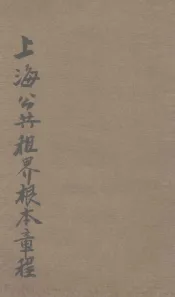 上海公共租界根本章程